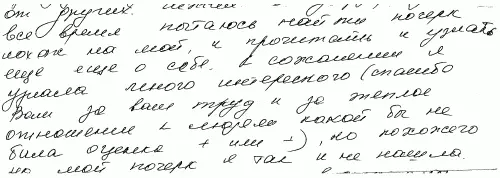 от других.
все время пытаюсь найти почерк
похож на мой, и прочитать и узнать
еще еще о себе. к сожалению я
узнала много интересного (спасибо
Вам за ваш труд и за теплое
отношение к людям какой бы не
была оценка + или -), но похожего
на мой почерк я так и не нашла.